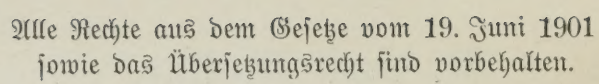 Alle Rechte aus dem Gesetze vom 19. Juni 1901
sowie das Übersetzungsrecht sind vorbehalten.